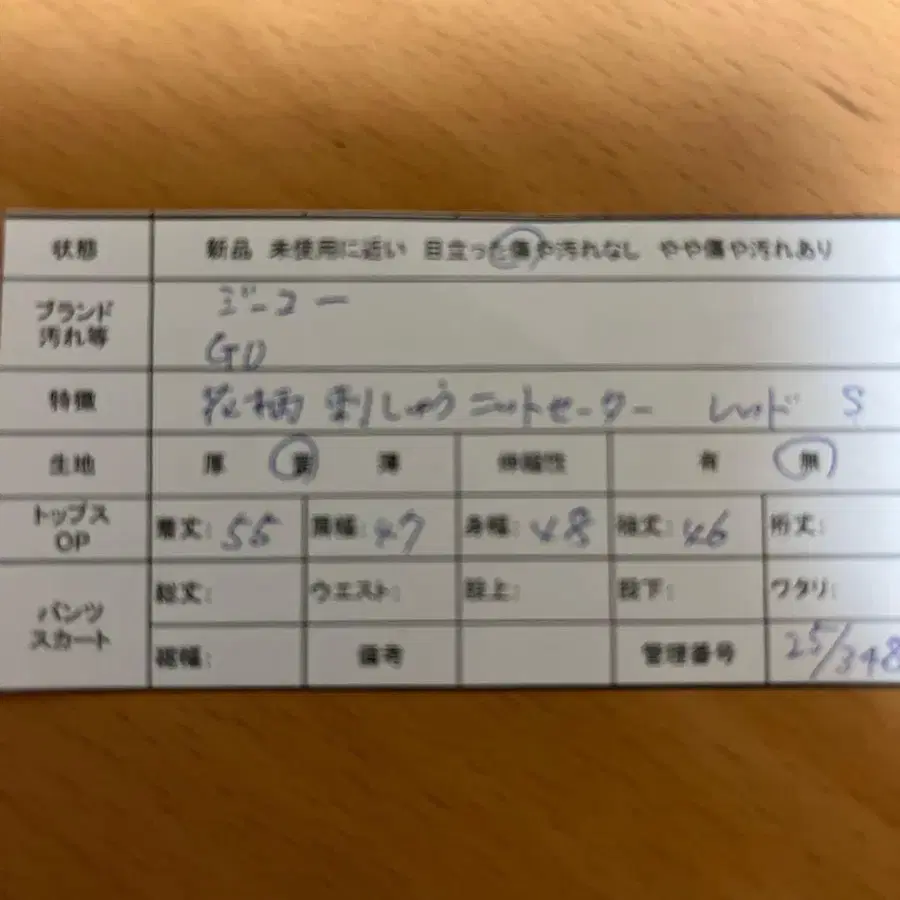 状態 新品 未使用に近い 目立った傷や汚れなし やや傷や汚れあり
ブランド 汚れ等 ジーユー
GU
特徴 花柄 刺しゅう ニットセーター レッド S
生地 厚 普 薄 伸縮性 有 無
トップス OP 着丈: 55 肩幅: 47 身幅: 48 袖丈: 46 裄丈:
パンツ スカート 総丈: ウエスト: 股上: 股下: ワタリ:
裾幅: 備考 管理番号 25/348